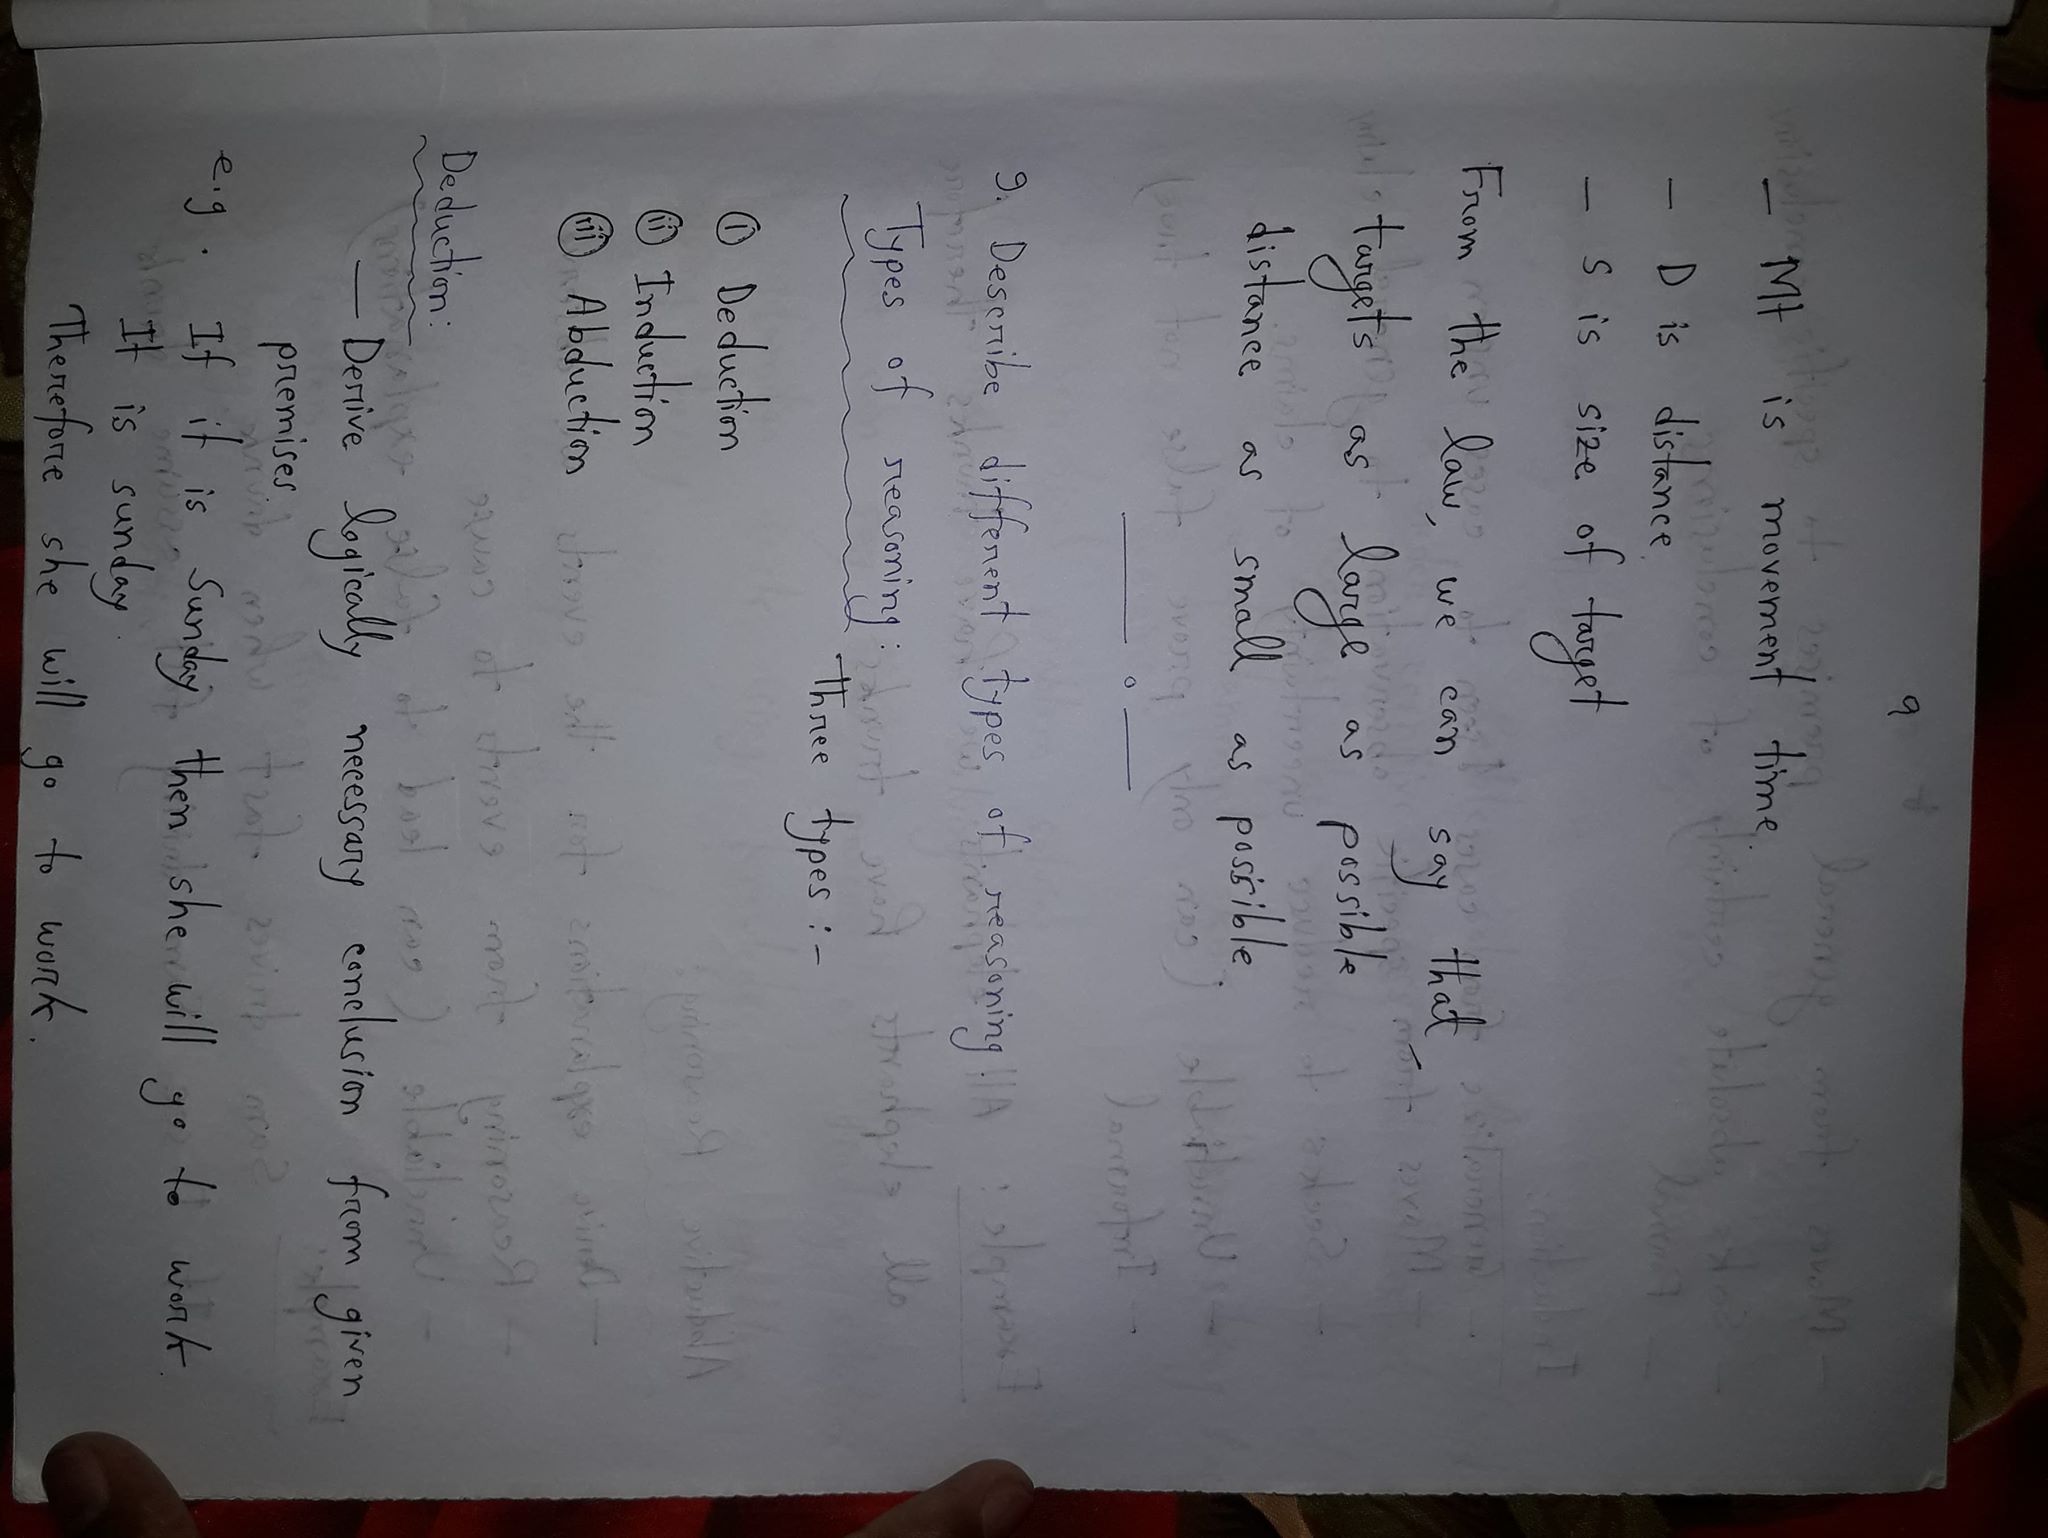 9
– Mt is movement time.
– D is distance
– S is size of target
From the law, we can say that
targets as large as possible
distance as small as possible
9. Describe different types of reasoning.
Types of reasoning: Three types :-
(i) Deduction
(ii) Induction
(iii) Abduction
Deduction:
— Derive logically necessary conclusion from given
premises
e.g. If it is Sunday then she will go to work
It is sunday.
Therefore she will go to work.